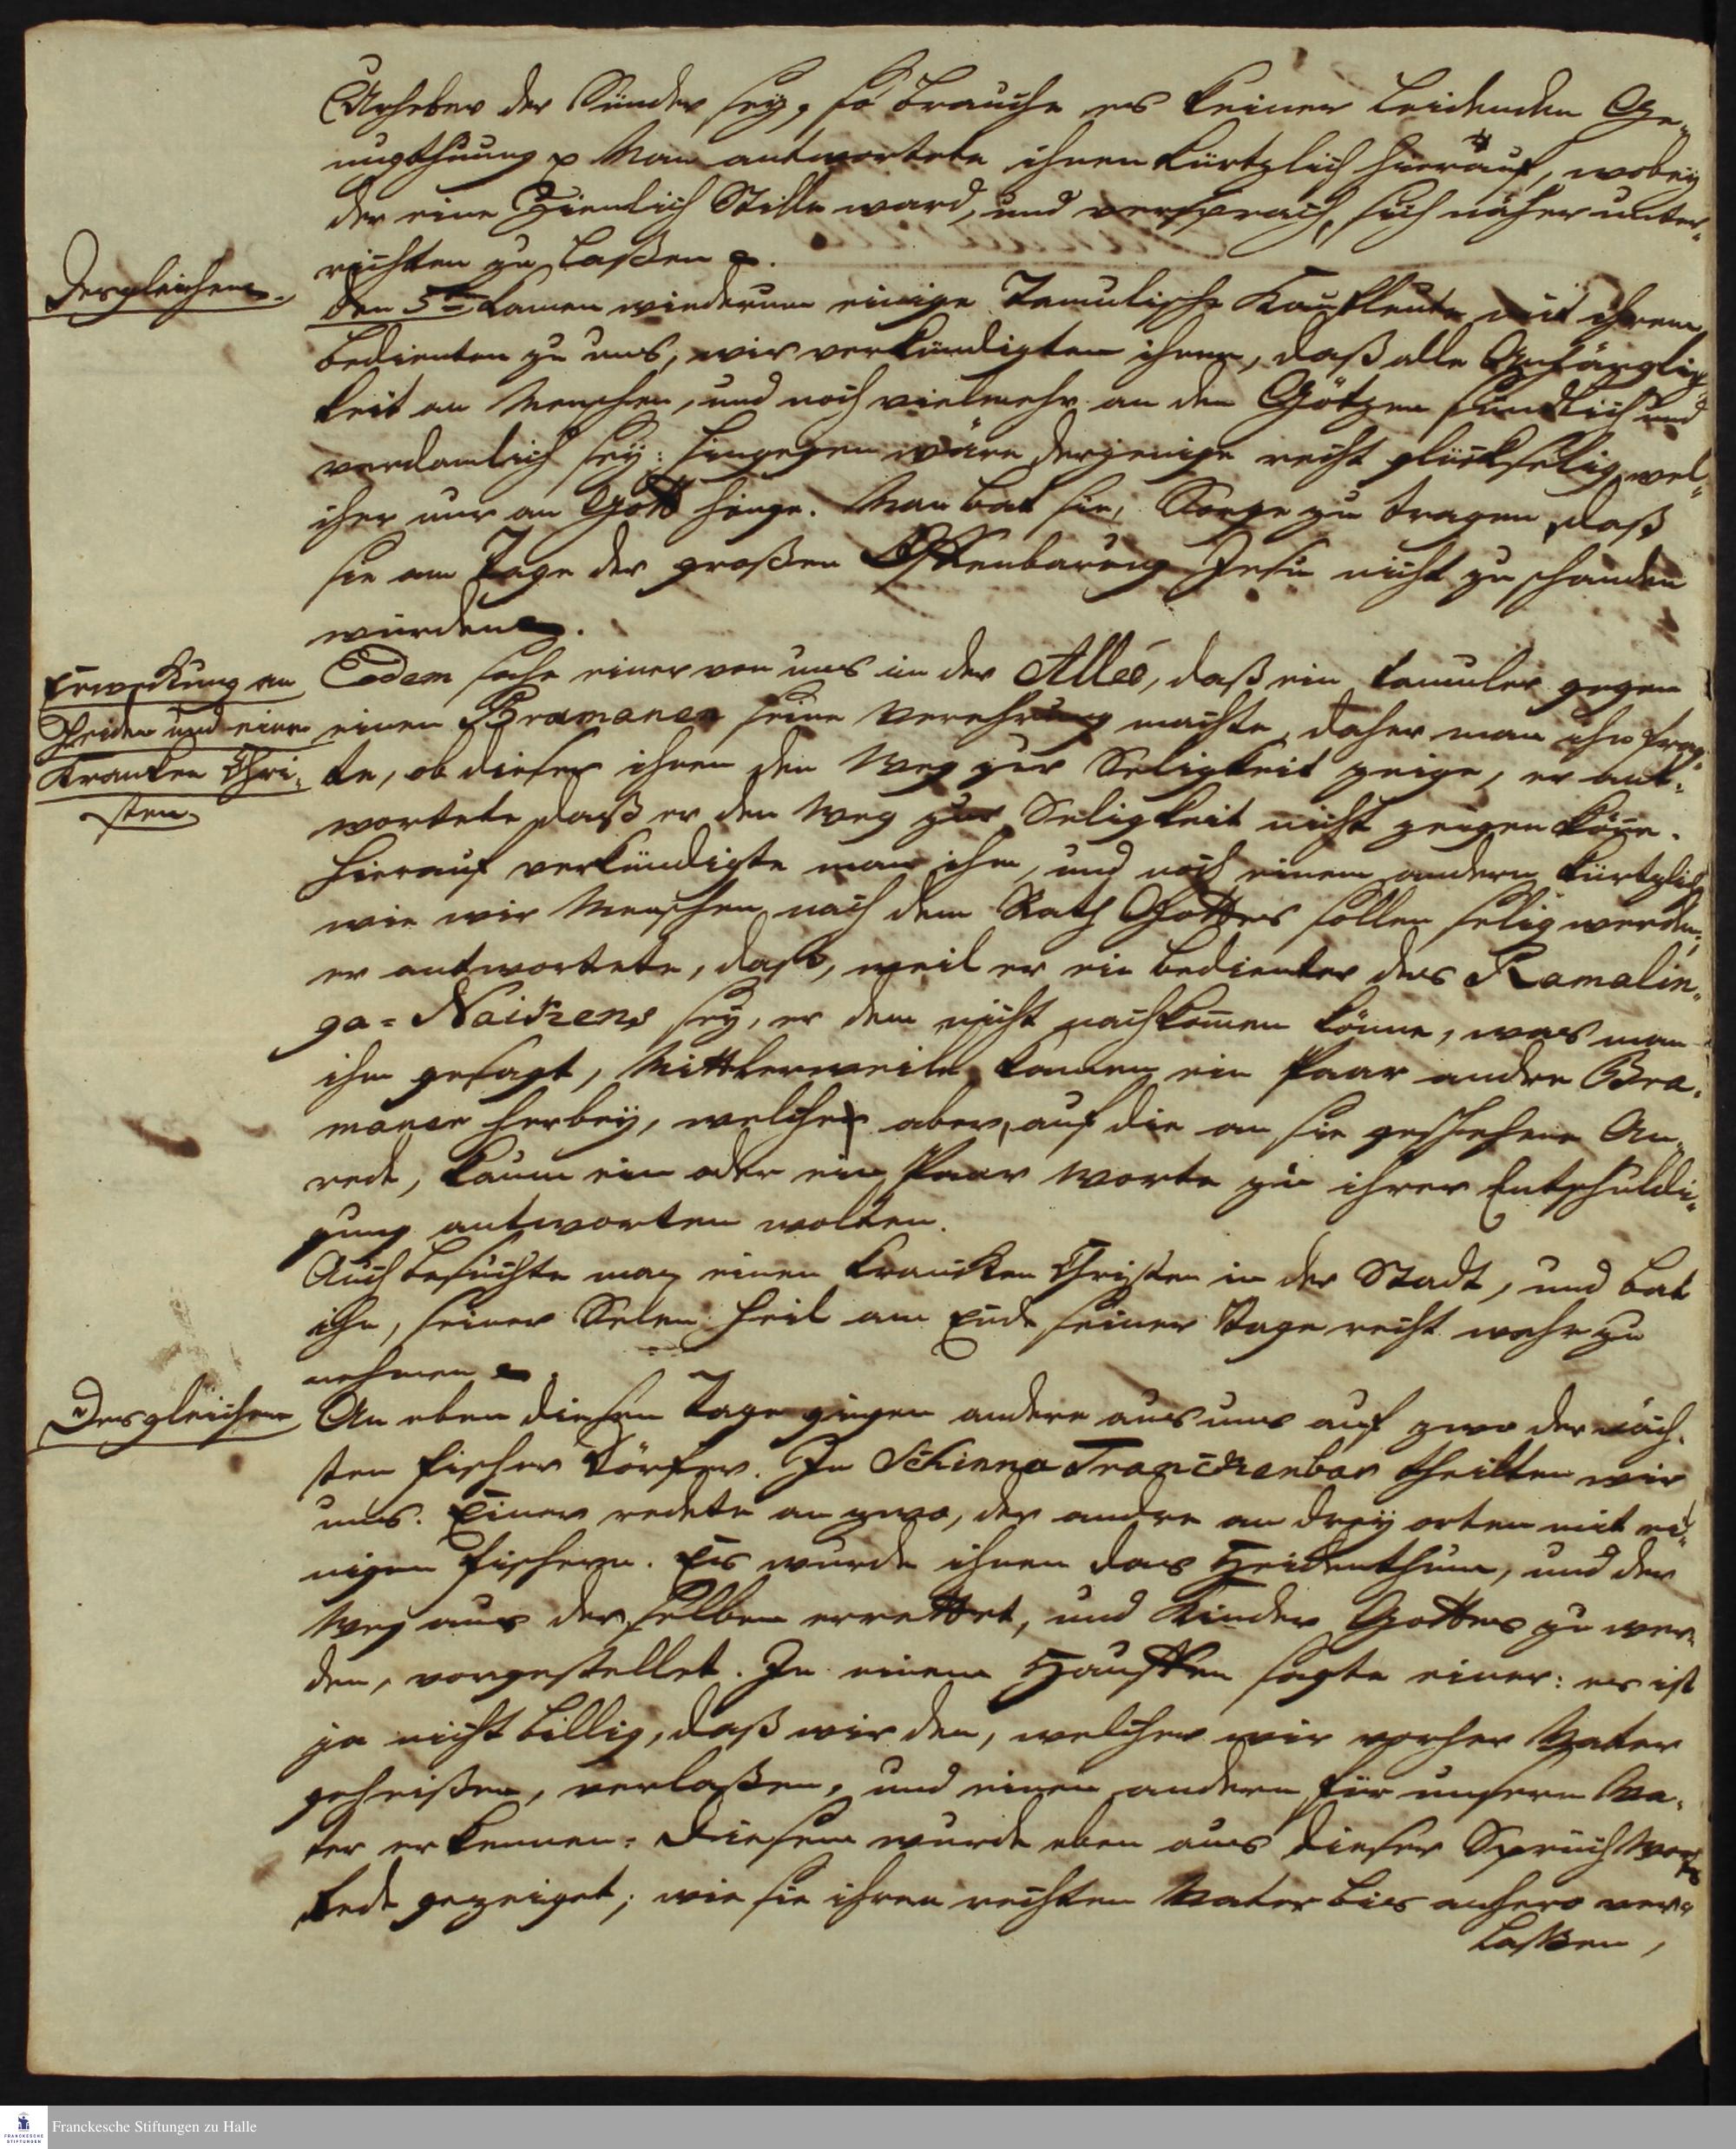 Urheber der Sünden sey, so brauche es keiner leidenden Ge-
nugthuung p Man antwortete ihnen kürtzlich hierauf, wobey
der eine ziemlich Stille ward, und versprach, sich näher unter-
richten zu laßen p.
Dergleichen.
den 5ten kamen wiederum einige Tamulische Kaufleute mit ihren
bedienten zu uns, wir verkündigten ihnen, daß alle Anhänglig-
keit an Menschen, und noch vielmehr an den Götzen sündlich und
verdamlich sey: hingegen wäre derjenige recht glückselig, wel-
cher nur an Gott hinge. Man bat sie, Sorge zu tragen, daß
sie am Tage der großen Offenbarung Jesu nicht zu schanden
würden p.
Erweckung an
Heiden und einen
Krancken Chri-
sten
Eodem sahe einer von uns in der Alleé, daß ein Tamuler gegen
einen Bramanen seine Verehrung machte, daher man ihn frag-
te, ob dieser ihnen den Weg zur Seligkeit zeige, er ant-
wortete, daß er den Weg zur Seligkeit nicht zeigen köne.
Hierauf verkündigte man ihm, und noch einem andern kürtzlich
wie wir Menschen nach dem Rath Gottes sollen selig werden;
er antwortete, daß, weil er ein bedienter des Ramalin-
ga-Naickens sey, er dem nicht nachkomen könne, was man
ihm gesagt, Mittlerweile kamen ein Paar andre Bra-
maner herbey, welche aber, auf die an sie geschehene An-
rede, kaum ein oder ein Paar Worte zu ihrer Entschuldi-
gung antworten wolten.
Auch besuchte man einen krancken Christen in der Stadt, und bat
ihn, seiner Selen Heil am Ende seiner Tage recht wahr zu
nehmen p
Desgleichen
An eben diesem Tage gingen andere aus uns auf zwo der näch-
sten fischer Dörfer. In Schinna Tranckenbar theilten wir
uns. Einer redete an zwo, der andre an drey orten mit ei-
nigen fischern. Es wurde ihnen das Heidenthum, und der
Weg aus demselben errettet, und Kinder Gottes zu wer-
den, vorgestellet. In einem Hauffen sagte einer: es ist
ja nicht billig, daß wir den, welchen wir vorher Vater
geheißen, verlaßen, und einen andern für unsern Va-
ter erkennen. Diesem wurde eben aus dieser Spruch Worts
Rede gezeiget; wie sie ihren rechten Vater bis anhero ver-
laßen,
Franckesche Stiftungen zu Halle